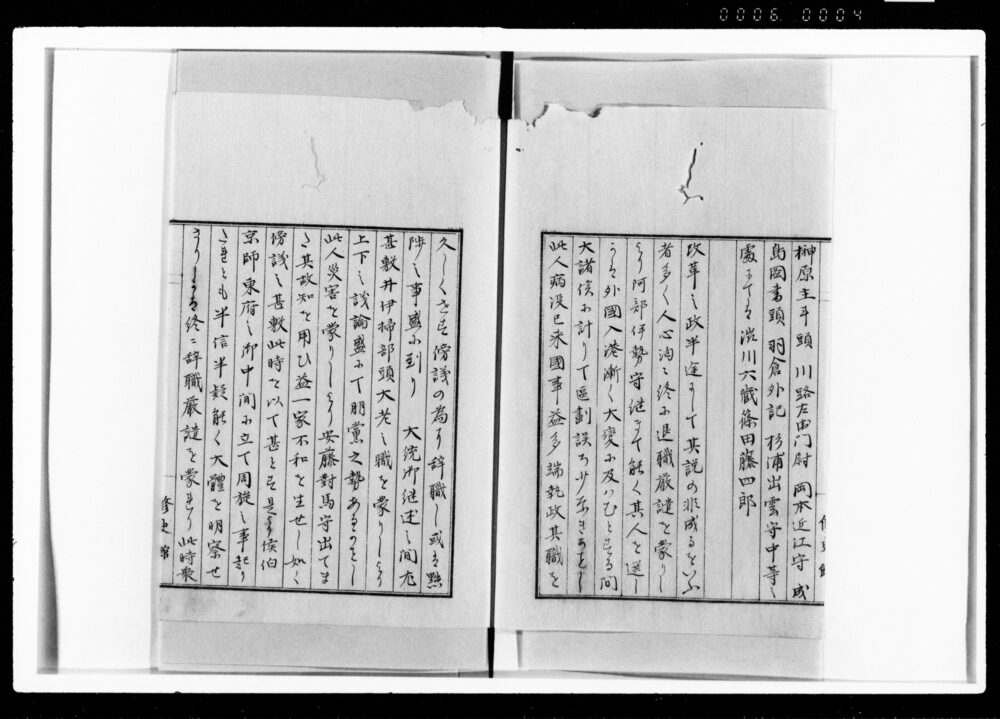 0006 0004
榊原主斗頭 川路左右門尉 岡本近江守 成
島図書頭 羽倉外記 杉浦出雲守中等ニ
處すてる 渋川六蔵篠田藤四郎
改革之政半途ニして其説の非成るをいふ
者多く人心洶々終に退職厳譴を蒙りし
より阿部伊勢守継きて能く其人を選し
うる外國入港漸く大変に及ハむとする間
大諸侯に計りて區劃誤ち少なきかをし
此人病没已来國事益多端執政其職を
久しくせす傍議の為に辞職し或は黙
陟之事盛に到り 大統御継述之間尤
甚敷井伊掃部頭大老之職を蒙りしより
上下之談論盛にて朋黨之勢あるかをし
此人災害を蒙りしより安藤對馬守出てま
た其故知を用ひ益一家不和を生せし如く
傍議之甚敷此時を以て甚とす是より侯伯
京師東府之御中間に立て周旋之事起り
たれとも半信半疑能く大體を明察せ
さりしかは終ニ辞職厳譴を蒙れり此時衆
修史館